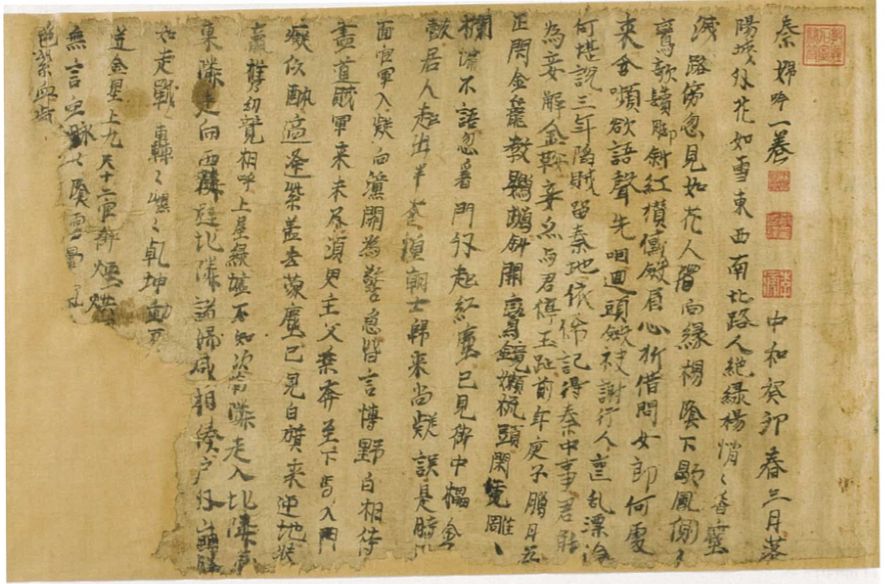 秦婦吟一卷 中和癸卯春三月落
陽城外花如雪東西南北路人絕綠楊悄々香塵
滅路傍忽見如花人獨向綠楊陰下歇鳳側
鸞欹鬢腳斜紅攢黛斂眉心折借問女郎何處
來含嚬欲語聲先咽迴頭斂袂謝行人喪亂漂淪
何堪說三年陷賊留秦地依俙記得秦中事君能
為妾解金鞍妾亦與君停玉趾前年庚子臘月五
正閇金籠教鸚鵡斜開鸞鏡懶梳頭閑憑雕
欄慵不語忽看門外起紅塵已見街中擂金
鼓居人走出半倉惶朝士歸來尚疑誤是時
面官軍入擬向潼關為警急皆言博野自相持
盡道賊軍來未及須臾主父乘奔至下馬入門
癡似醉適逢紫蓋去蒙塵已見白旗來迊地扶
羸攜幼競相呼上屋緣牆不知次南隣走入北隣
東隣走向西隣避北隣諸婦咸相湊戶外崩騰
如走獸轟々崐々乾坤動
迸金星上九天十二官街煙烘
無言空脉々陰雲暈